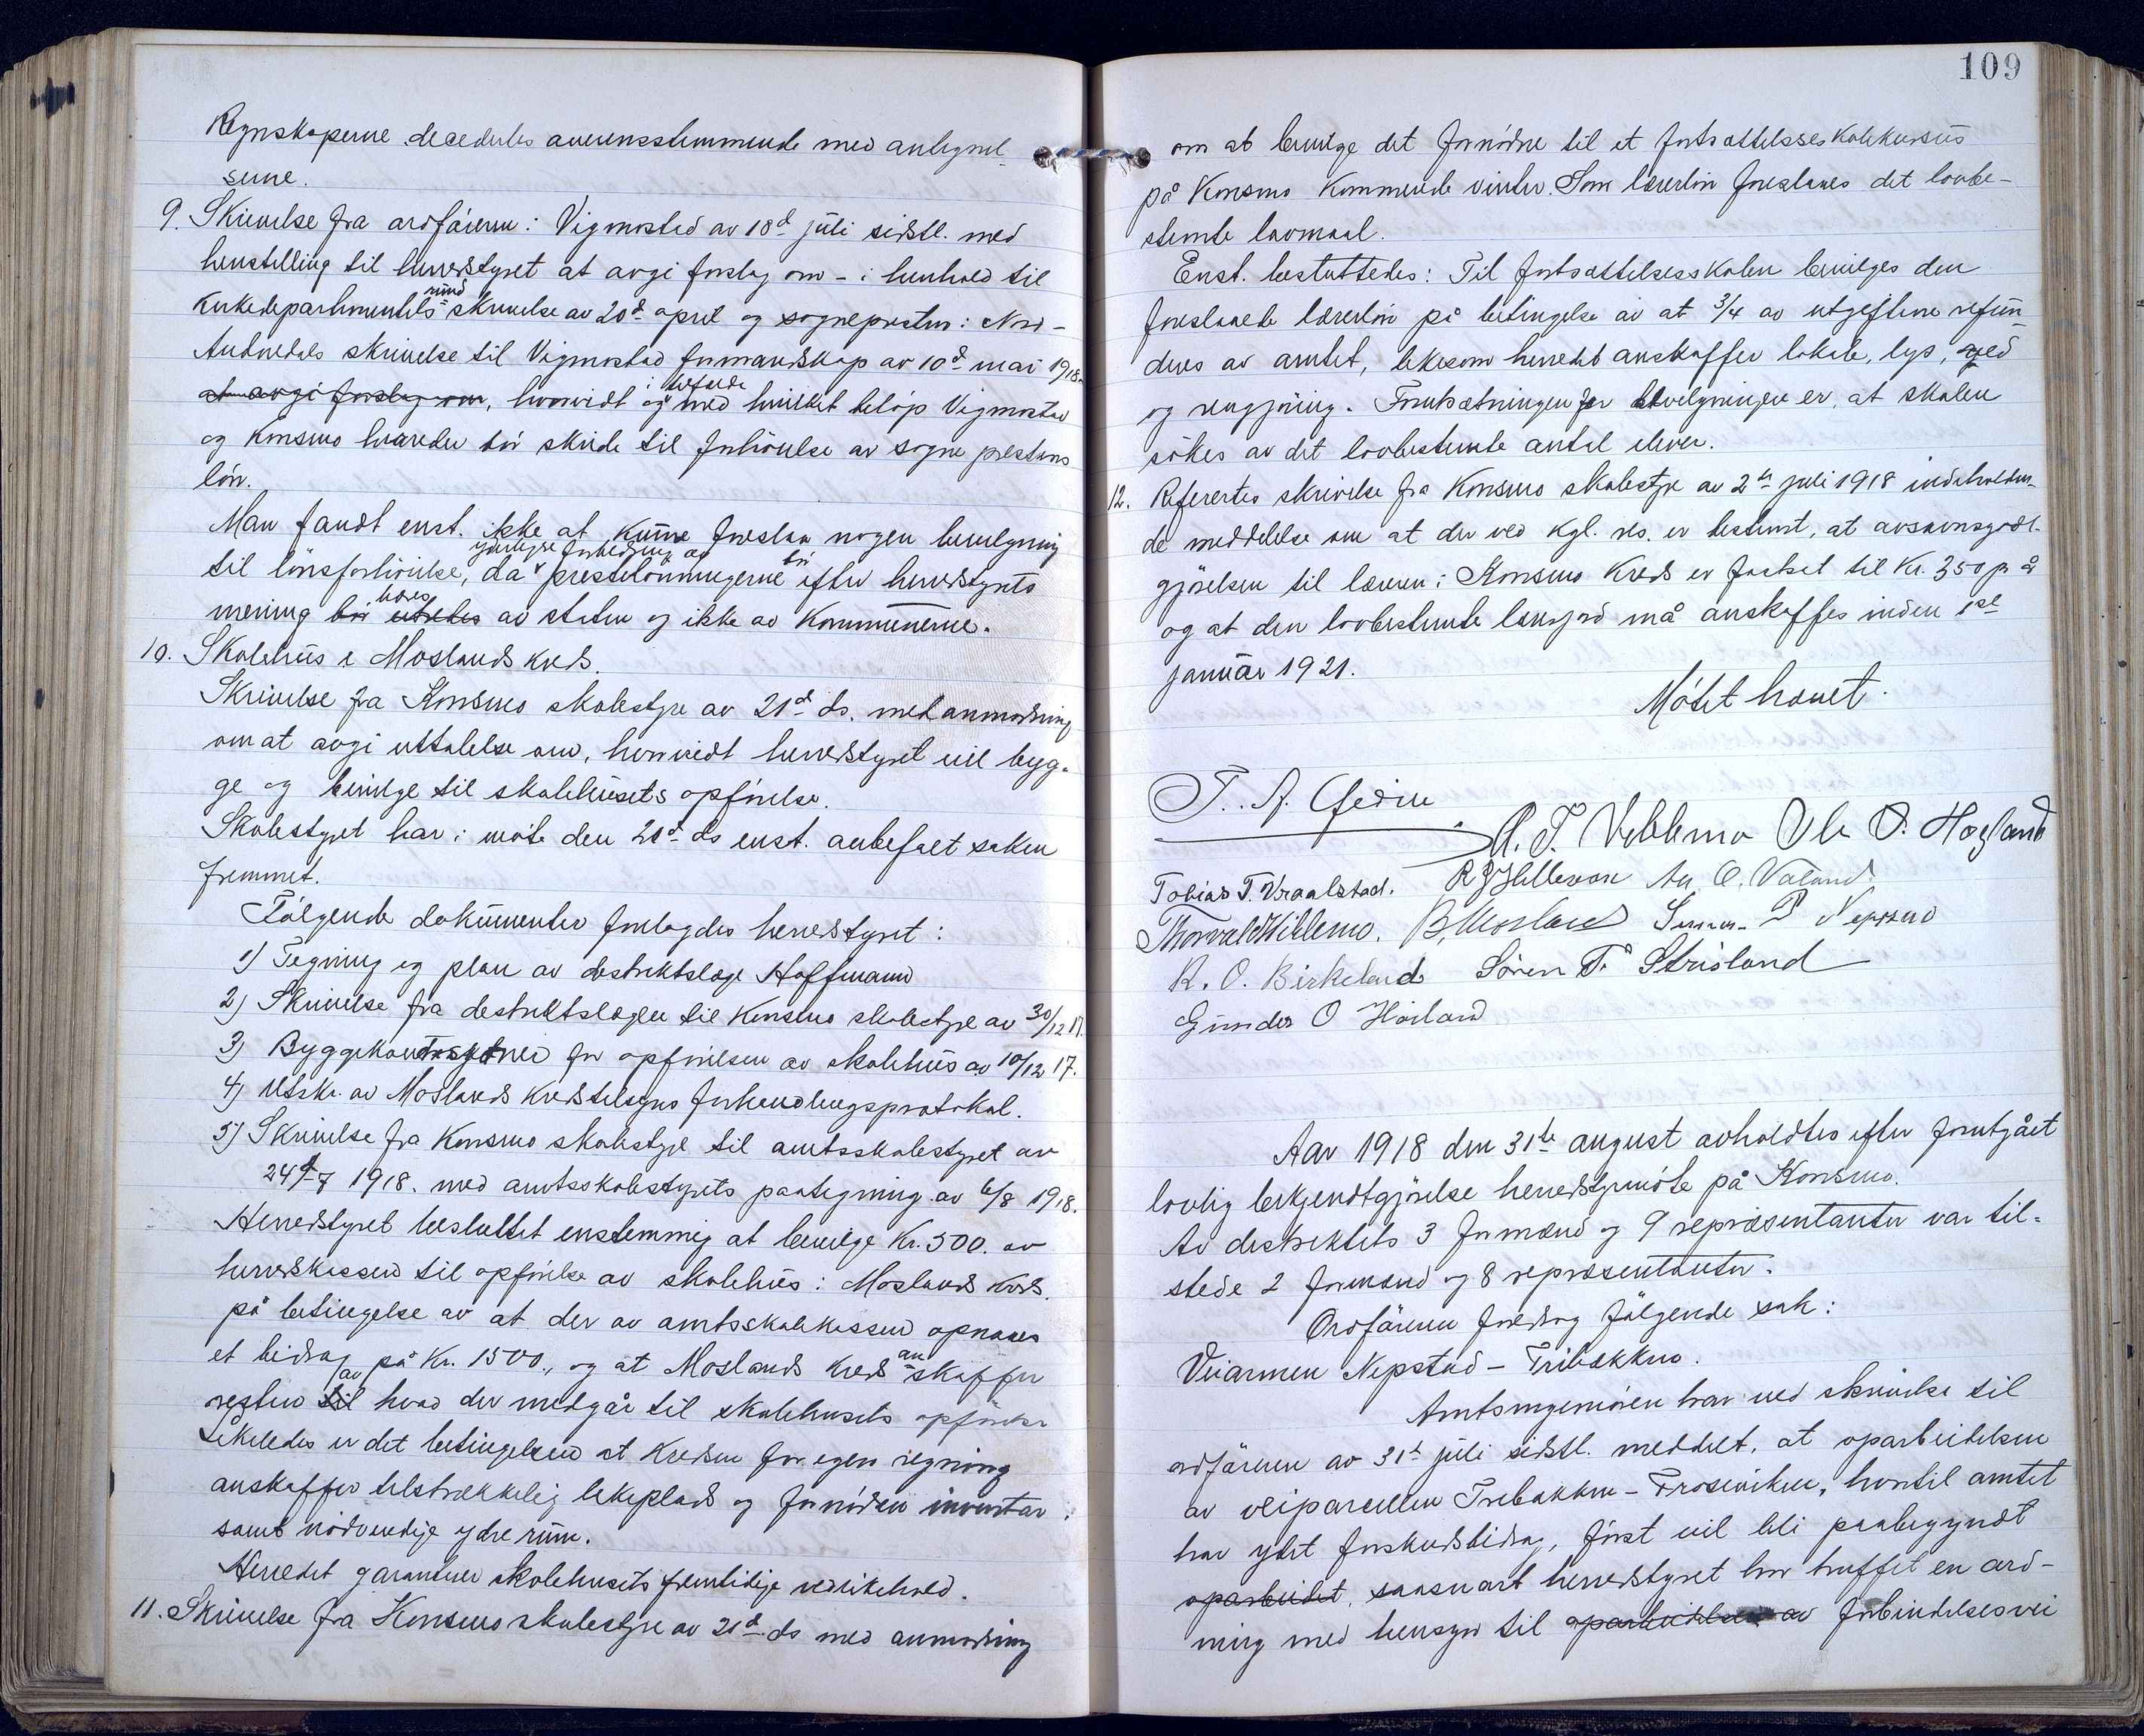 Regnskaperne decedertes overensstemmende med antegnel-
serne.
9. Skrivelse fra ordføreren i Vigmostad av 18d juli sidstl. med
henstilling til herredstyret at avgi forslag om - i henhold til
Kirkedepartementets rundskrivelse av 20d april og sogneprestens i Nord-
Audnedals skrivelse til Vigmostad formandskap av 10d mai 1918
at avgi forslag om, hvorvidt og i tilfælde med hvilket beløp Vigmostad
og Konsmo herreder bør skride til forhøielse av sogneprestens
løn.
Man fandt enst. ikke at kunne foreslaa nogen bevilgning
til lønsforhøielse, da yderligere forbedring av prestelønningerne bør efter herredstyrets
mening bør utredes bæres av staten og ikke av Kommunerne.
10. Skolehus i Moslands kreds.
Skrivelse fra Konsmo skolestyre av 21d ds. med anmodning
om at avgi uttalelse om, hvorvidt herredstyret vil byg-
ge og bevilge til skolehusets opførelse.
Skolestyret har i møte den 20d ds enst. anbefalt saken
fremmet.
Følgende dokumenter forelagdes herredstyret:
1) Tegning og plan av distriktslæge Hoffmann
2) Skrivelse fra distriktslægen til Konsmo skolestyre av 30/12 17.
3) Byggekontrakt for opførelsen av skolehus av 10/12 17.
4) Utskr. av Moslands kredstilsyns forhandlingsprotokol.
5) Skrivelse fra Konsmo skolestyre til amtsskolestyret av
24/7 1918. med amtsskolestyrets paategning av 6/8 1918.
Herredstyret besluttet enstemmig at bevilge Kr. 500. av
herredskassen til opførelse av skolehus i Moslands kreds.
på betingelse av at der av amtsskolekassen opnaaes
et bidrag på Kr. 1500., og at Moslands kreds anskaffer
resten til av hvad der medgår til skolehusets opførelse
Likeledes er det betingelsen at Kredsen for egen regning
anskaffer tilstrækkelig lekeplads og fornøden inventar
samt nødvendige ydre rum.
Herredet garanterer skolehusets fremtidige vedlikehold.
11. Skrivelse fra Konsmo skolestyre av 21d ds med anmodning
109
om at bevilge det fornødne til et fortsættelsesskolekursus
på Konsmo kommende vinter. Som lærerløn foreslaaes det lovbe-
stemte lavmaal.
Enst. besluttedes: Til fortsættelsesskolen bevilges den
foreslaaede lærerløn på betingelse av at 3/4 av utgiftene refun-
deres av amtet, likesom herredet anskaffer lokale, lys, ved
og rengjøring. Forutsætningen for bevilgningen er, at skolen
søkes av det lovbestemte antal elever.
12. Refertes skrivelse fra Konsmo skolestyre av 2de juli 1918 indeholden-
de meddelelse om at der ved kgl. res. er bestemt, at avsavnsgodt-
gjørelsen til læreren i Konsmo Kreds er fastsat til Kr. 350 pr år
og at den lovbestemte lærerjord må anskaffes inden 1ste
januar 1921.
Møtet hævet.
T. A. Gedine
A. T. Vehlemo Ole O. Høgland
Tobias T. Vraalstad. R J Hellevann An. O. Valand.
Thorvald Hillemo. B. Mosland P Nepstad
R. O. Birkeland Søren T. Strisland
Gunder O Høiland
Aar 1918 den 31te august avholdtes efter forutgået
lovlig bekjendtgjørelse herredstyremøte på Konsmo.
Av distriktets 3 formænd og 9 repræsentanter var til-
stede 2 formænd og 8 repræsentanter.
Ordføreren foredrog følgende sak:
Veiarmen Nepstad - Tribakken.
Amtsingeniøren har ved skrivelse til
ordføreren av 31te juli sidstl. meddelt, at oparbeidelsen
av veiparcellen Trebakken - Froseviken, hvortil amtet
har ydet forskudsbidrag, først vil bli paabegyndt
oparbeidet, saasnart herredstyret har truffet en ord-
ning med hensyn til oparbeidelsen av forbindelsesvei